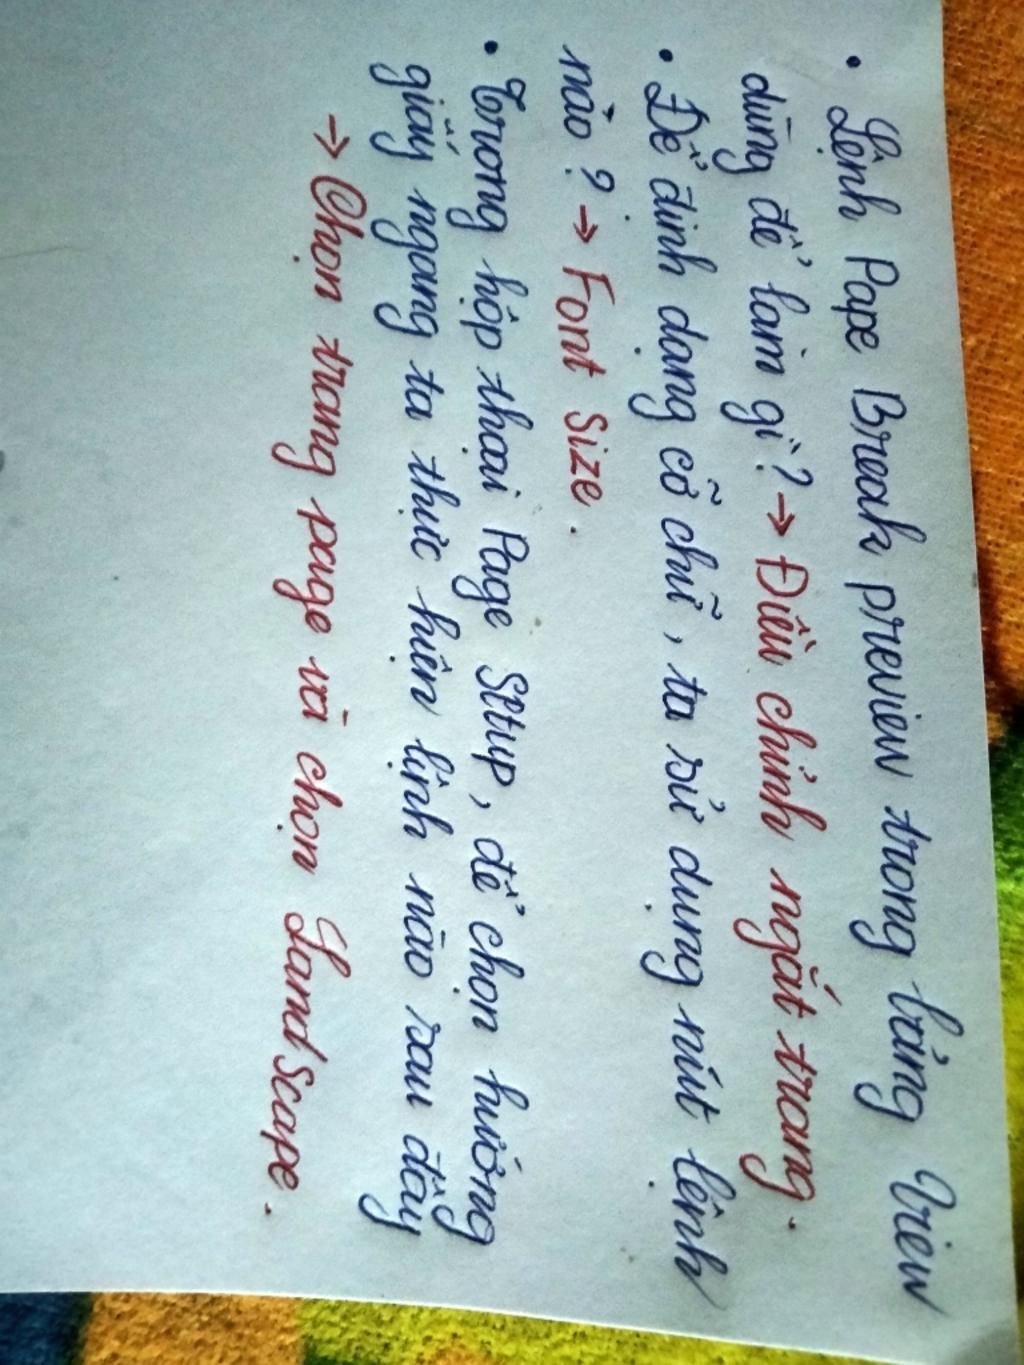 • Lệnh Pape Break preview trong bảng View
dùng để làm gì? → Điều chỉnh ngắt trang.
• Để định dạng cỡ chữ, ta sử dụng nút lệnh
nào? → Font Size.
• Trong hộp thoại Page Setup, để chọn hướng
giấy ngang ta thực hiện lệnh nào sau đây
→ Chọn trang page và chọn LandScape.